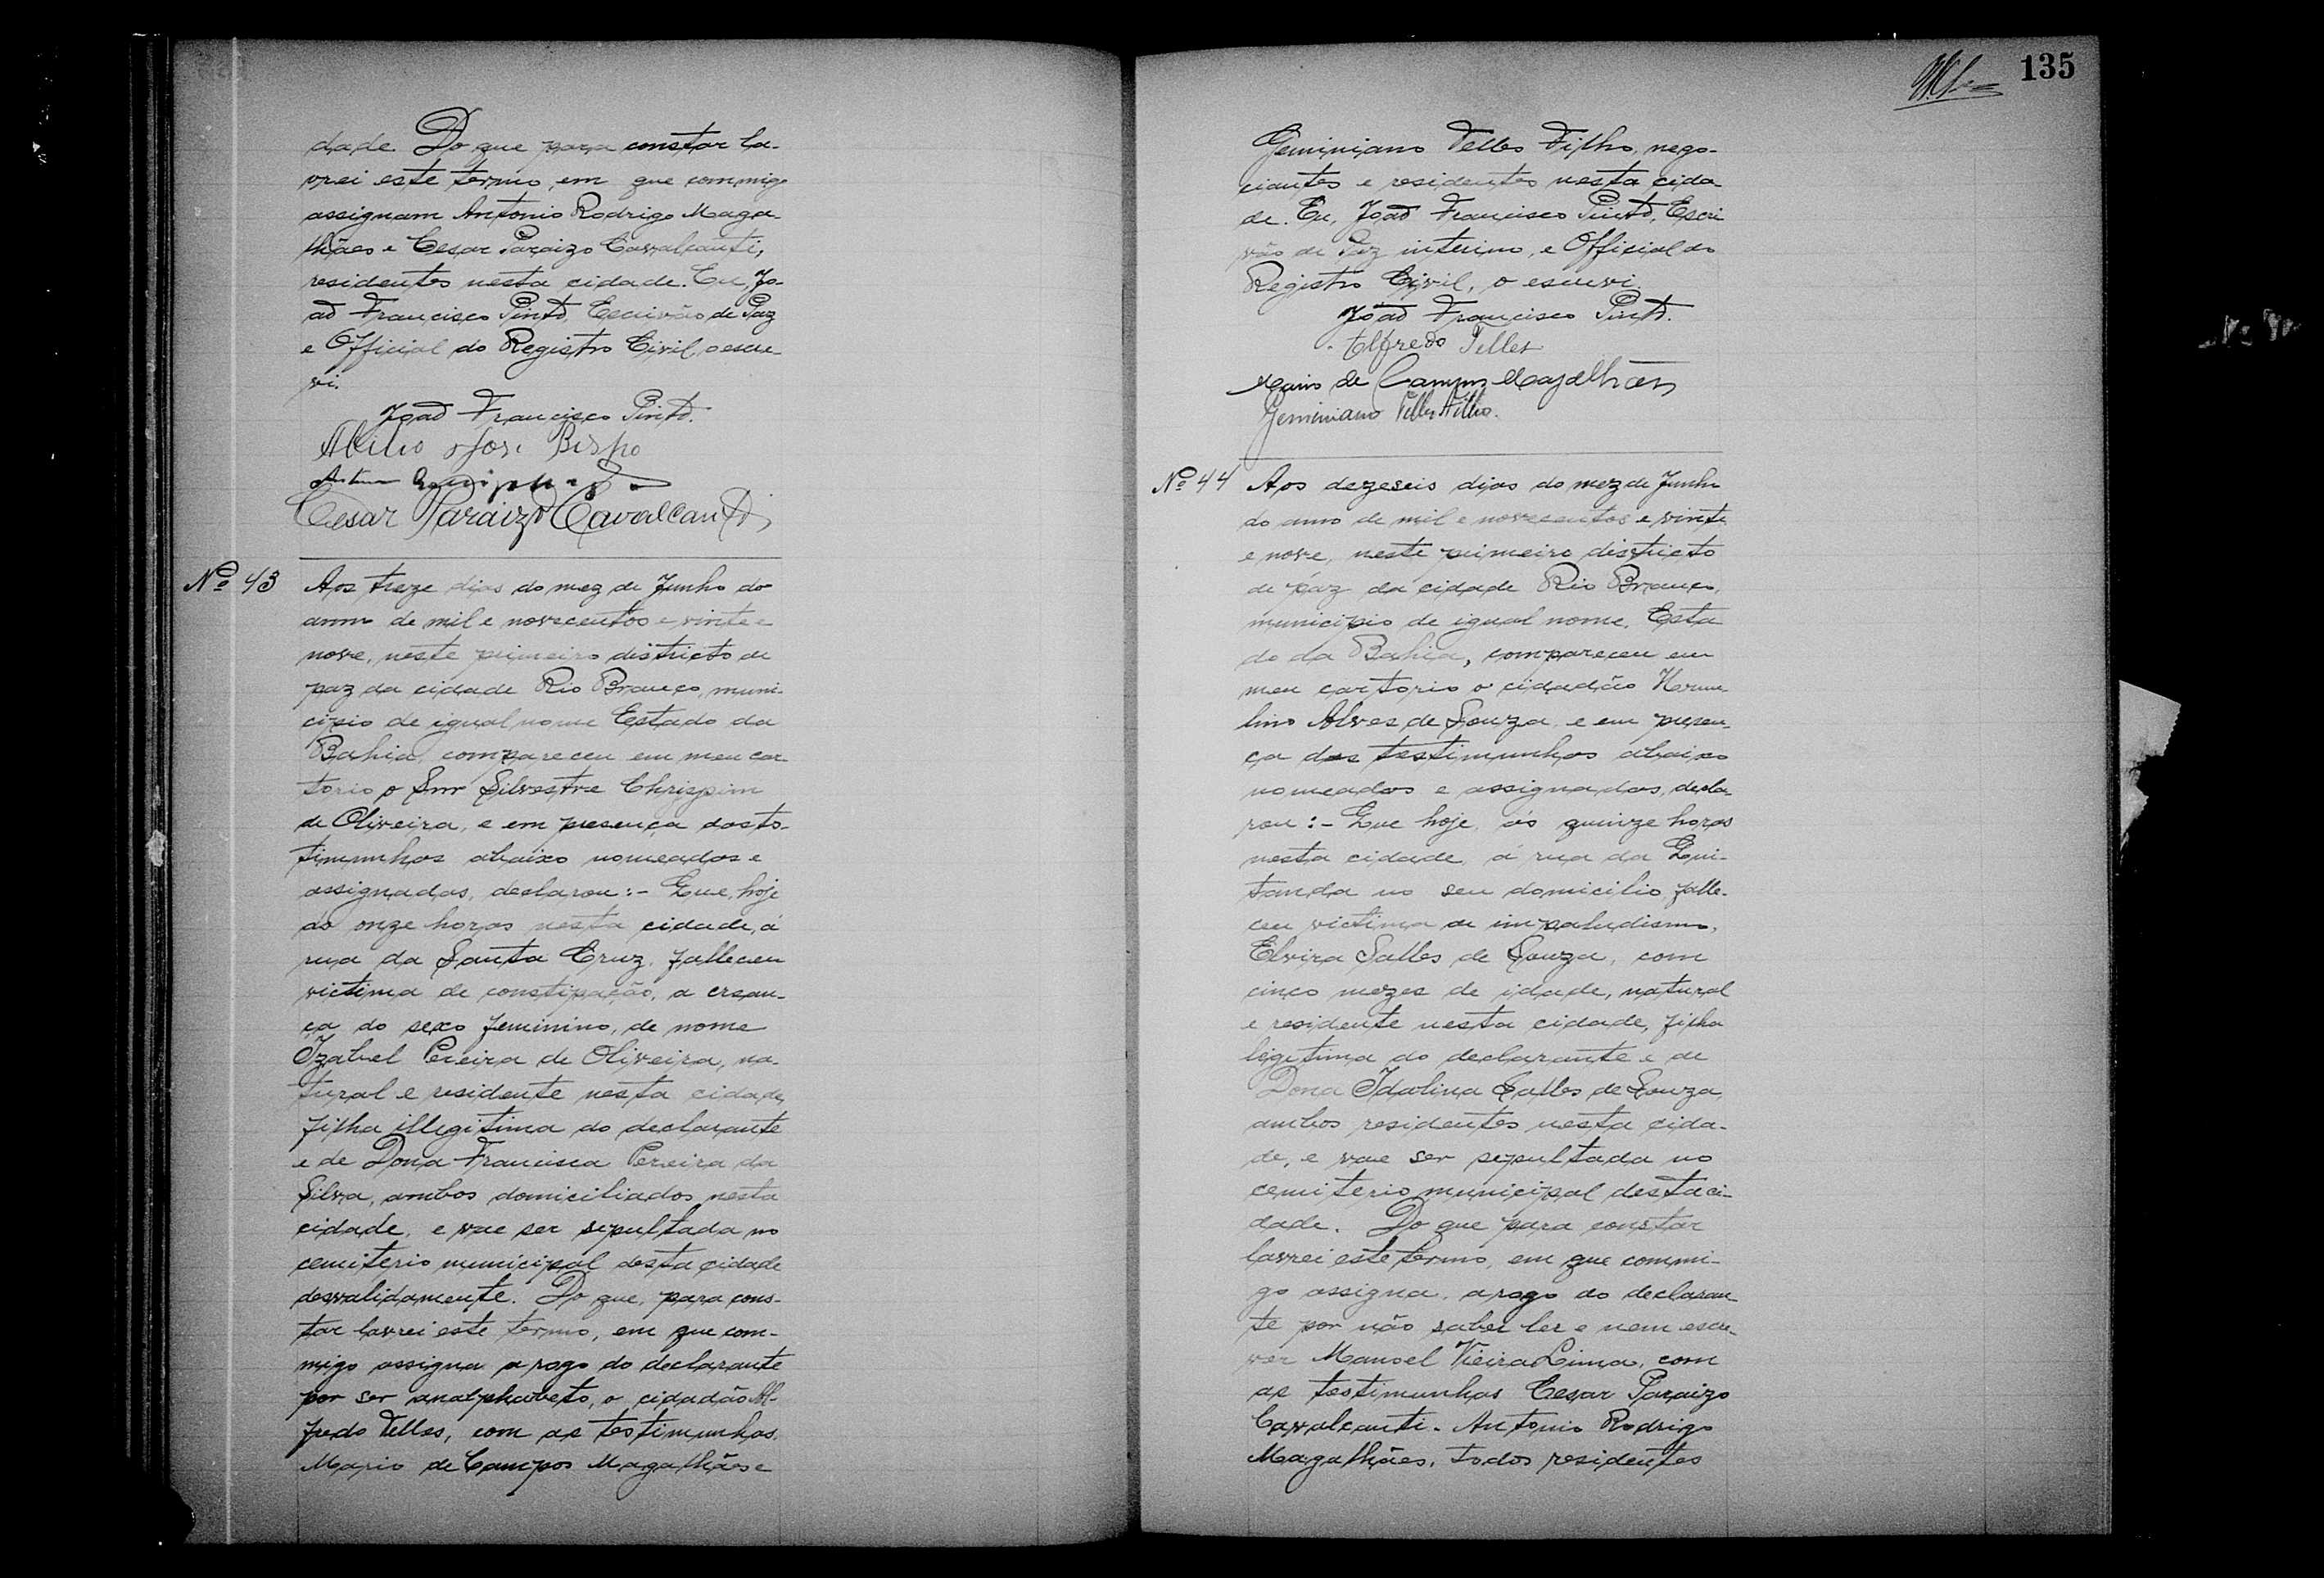 dade. Do que para constar la-
vrei este termo, em que commigo
assignam Antonio Rodrigo Maga-
lhães e Cesar Paraizo Cavalcanti,
residentes nesta cidade. Eu, Jo-
ão Francisco Pinto, Escrivão de Paz
e Official do Registro Civil, o escre-
vi.
João Francisco Pinto.
Abilio José Bispo
Cesar Paraizo Cavalcanti
Nº 43 Aos treze dias do mez de Junho do
anno de mil e novecentos e vinte e
nove, neste primeiro districto de
paz da cidade Rio Branco, muni-
cipio de igual nome Estado da
Bahia, compareceu em meu car-
torio o Snr Silvestre Chrispim
de Oliveira, e em presença das tes-
timunhas abaixo nomeadas e
assignadas, declarou:- Que, hoje
ás onze horas nesta cidade, á
rua da Santa Cruz, falleceu
victima de constipação, a crean-
ça do sexo feminino, de nome
Izabel Pereira de Oliveira, na-
tural e residente nesta cidade,
filha illegitima do declarante
e de Dona Francisca Pereira da
Silva, ambos domiciliados nesta
cidade, e vae ser sepultada no
cemiterio municipal desta cidade
desvalidamente. Do que, para cons-
tar lavrei este termo, em que com-
migo assigna a rogo do declarante
por ser analphabeto, o cidadão Al-
fredo Telles, com as testimunhas.
Mario de Campos Magalhães e
135
Geminiano Telles Filho, nego-
ciantes e residentes nesta cida-
de. Eu, João Francisco Pinto, Escri
vão de Paz interino, e Official do
Registro Civil, o escrevi.
João Francisco Pinto.
Alfredo Telles
Mario de Campos Magalhães
Geminiano Telles Filho.
Nº 44 Aos dezeseis dias do mez de Junho
do anno de mil e novecentos e vinte
e nove, neste primeiro districto
de paz da cidade Rio Branco,
municipio de igual nome, Esta
do da Bahia, compareceu em
meu cartorio o cidadão Herme-
lino Alves de Souza, e em presen-
ça das testimunhas abaixo
nomeadas e assignadas, decla-
rou:- Que hoje, ás quinze horas
nesta cidade, á rua da Qui-
tanda no seu domicilio, falle-
ceu victima de impaludismo,
Elvira Salles de Souza, com
cinco mezes de idade, natural
e residente nesta cidade, filha
legitima do declarante e de
Dona Idalina Salles de Souza,
ambos residentes nesta cida-
de, e vae ser sepultada no
cemiterio municipal desta ci-
dade. Do que para constar
lavrei este termo, em que commi-
go assigna, a rogo do declaran-
te por não saber ler e nem escre-
ver Manoel Vieira Lima, com
as testimunhas Cesar Paraizo
Cavalcanti. Antonio Rodrigo
Magalhães, todos residentes